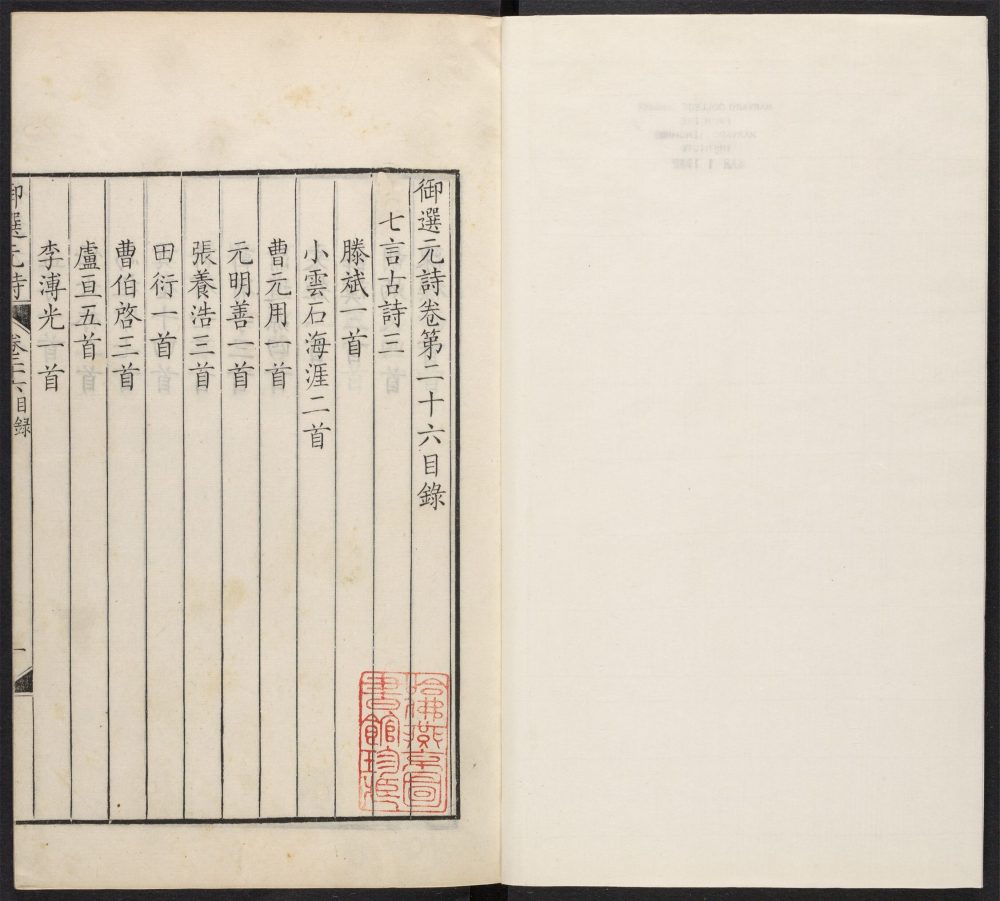 御選元詩卷第二十六目錄
七言古詩三
滕斌一首
小雲石海涯二首
曹元用一首
元明善一首
張養浩三首
田衍一首
曹伯啓三首
盧亘五首
李溥光一首
御選元詩 卷二十六目錄 一
哈佛燕京圖
書館珍藏